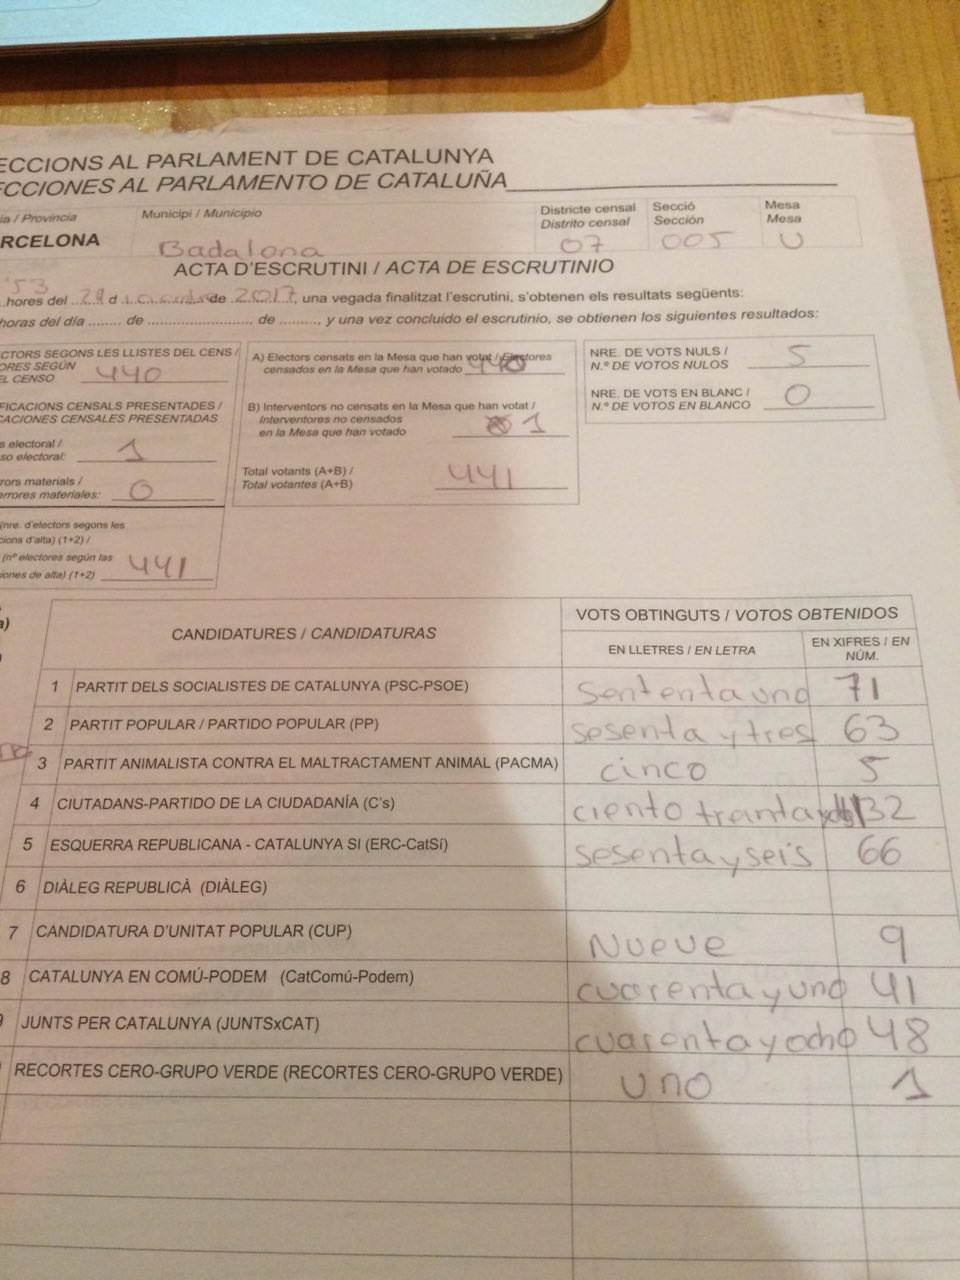 ECCIONS AL PARLAMENT DE CATALUNYA
ECCIONES AL PARLAMENTO DE CATALUÑA
ia / Provincia
Municipi / Municipio
Districte censal
Distrito censal
Secció
Sección
Mesa
Mesa
RCELONA
Badalona
07
005
U
ACTA D'ESCRUTINI / ACTA DE ESCRUTINIO
53
hores del 21 d de 2017, una vegada finalitzat l'escrutini, s'obtenen els resultats següents:
horas del día ........ de ........................ de ........, y una vez concluido el escrutinio, se obtienen los siguientes resultados:
CTORS SEGONS LES LLISTES DEL CENS /
ORES SEGÚN
EL CENSO 440
FICACIONS CENSALS PRESENTADES /
CACIONES CENSALES PRESENTADAS
s electoral /
so electoral: 1
rors materials /
errores materiales: 0
(nre. d'electors segons les
cions d'alta) (1+2) /
(nº electores según las
iones de alta) (1+2) 441
A) Electors censats en la Mesa que han votat / Electores
censados en la Mesa que han votado 440
B) Interventors no censats en la Mesa que han votat /
Interventores no censados
en la Mesa que han votado 1
Total votants (A+B) /
Total votantes (A+B) 441
NRE. DE VOTS NULS /
N.º DE VOTOS NULOS 5
NRE. DE VOTS EN BLANC /
N.º DE VOTOS EN BLANCO 0
a)
CANDIDATURES / CANDIDATURAS
VOTS OBTINGUTS / VOTOS OBTENIDOS
EN LLETRES / EN LETRA
EN XIFRES / EN
NÚM.
1 PARTIT DELS SOCIALISTES DE CATALUNYA (PSC-PSOE) sententa uno 71
2 PARTIT POPULAR / PARTIDO POPULAR (PP) sesenta y tres 63
3 PARTIT ANIMALISTA CONTRA EL MALTRACTAMENT ANIMAL (PACMA) cinco 5
4 CIUTADANS-PARTIDO DE LA CIUDADANÍA (C's) ciento treinta 132
5 ESQUERRA REPUBLICANA - CATALUNYA SI (ERC-CatSí) sesenta y seis 66
6 DIÀLEG REPUBLICÀ (DIÀLEG)
7 CANDIDATURA D'UNITAT POPULAR (CUP) Nueve 9
8 CATALUNYA EN COMÚ-PODEM (CatComú-Podem) cuarenta y uno 41
JUNTS PER CATALUNYA (JUNTSxCAT) cuarenta y ocho 48
RECORTES CERO-GRUPO VERDE (RECORTES CERO-GRUPO VERDE) uno 1